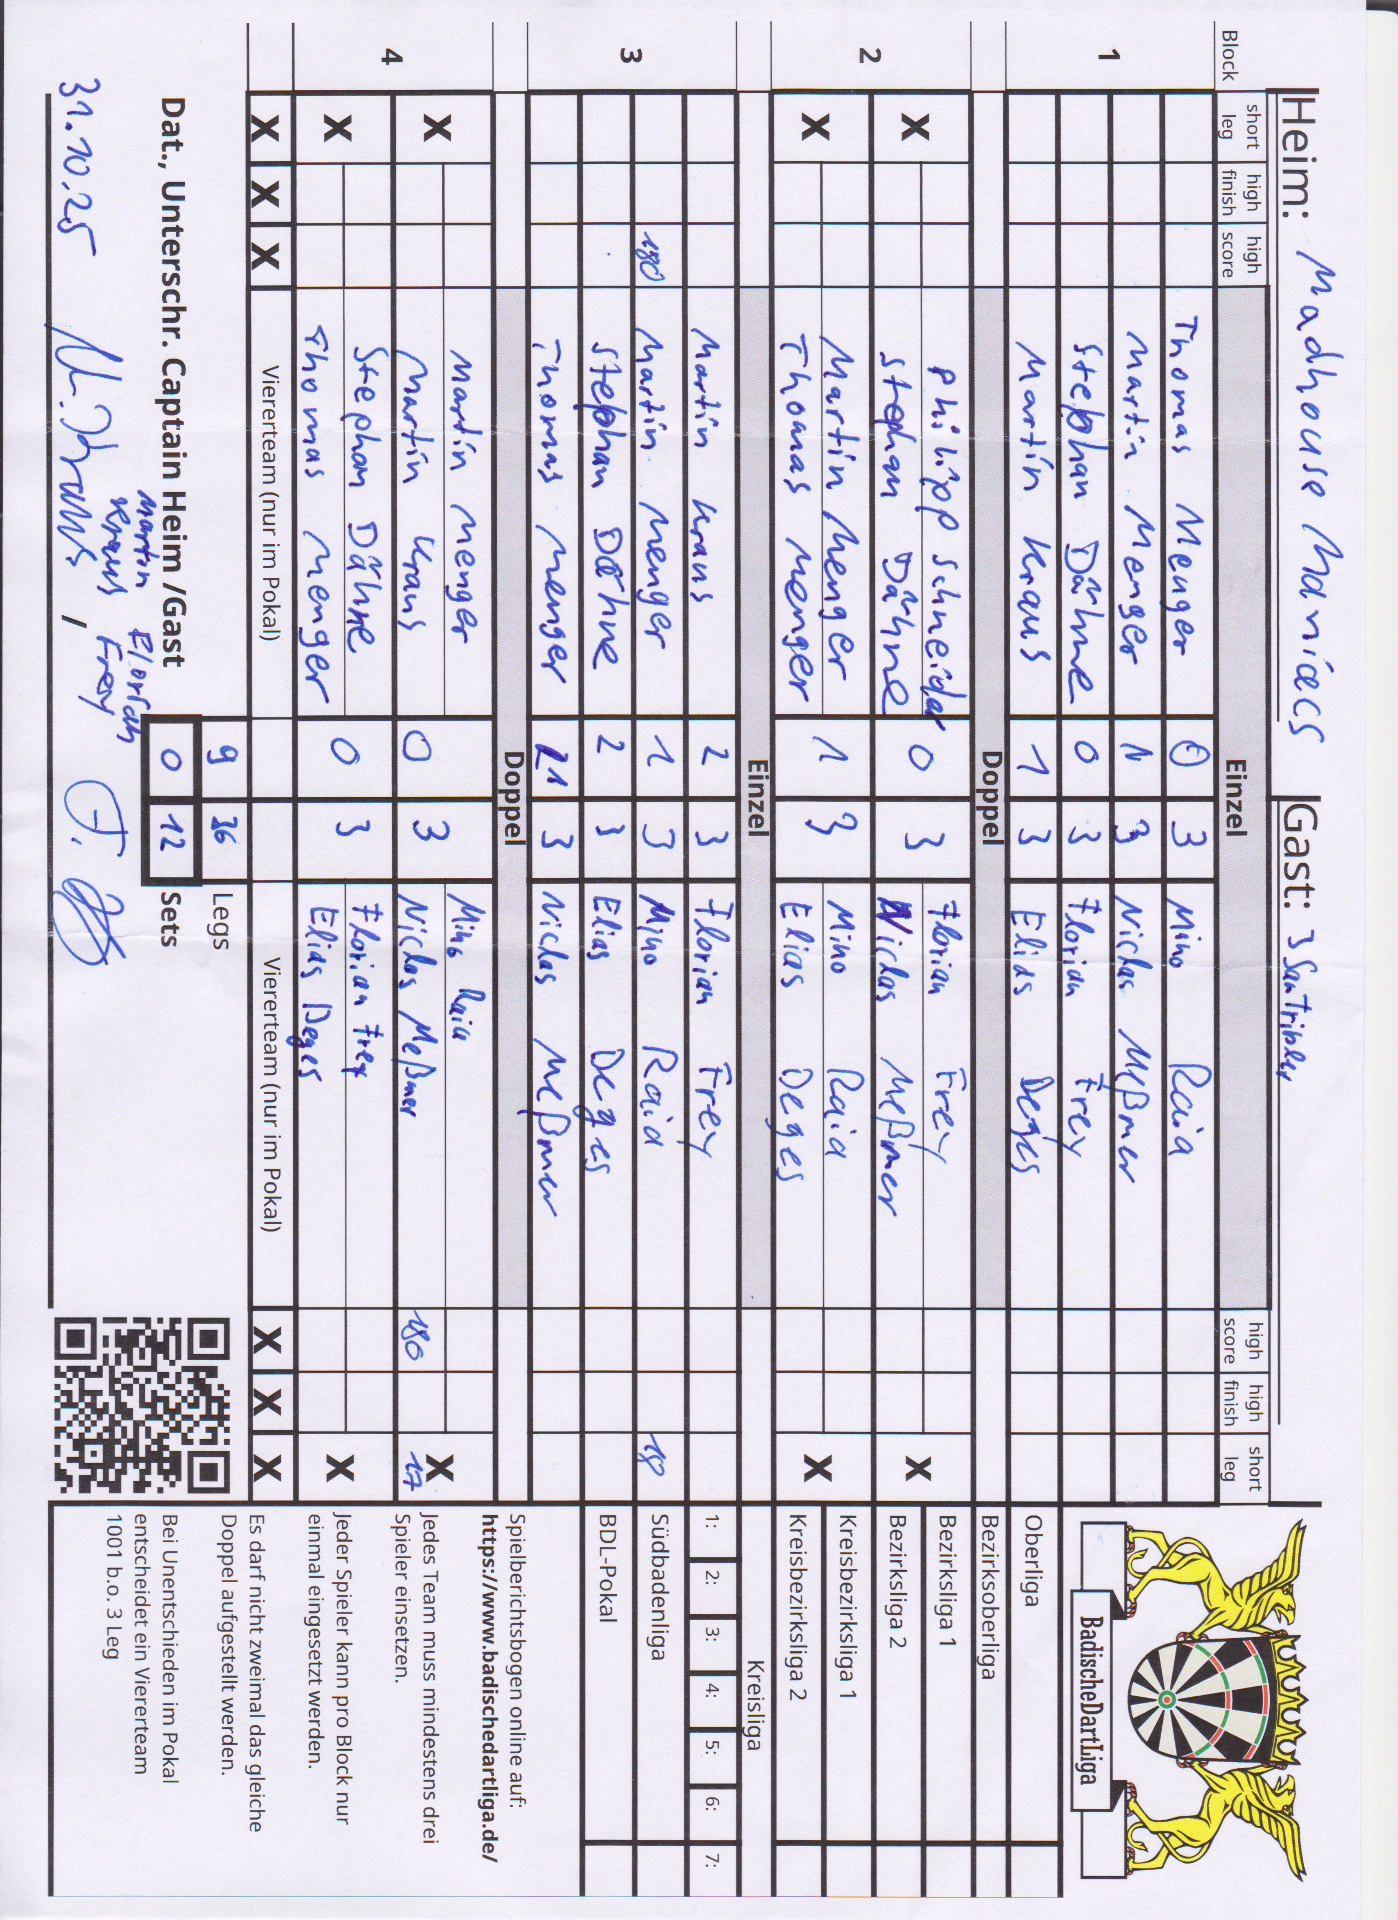 Heim: Madhouse Maniacs Gast: 3 SanTribler
Block short leg high finish high score Einzel high score high finish short leg
1
Thomas Menger 0 3 Mino Raia
Martin Menger 1 3 Niclas Meßmer
Stephan Dähne 0 3 Florian Frey
Martin Kraus 1 3 Elias Deges
Doppel
2
X Philipp Schneider 0 3 Florian Frey X
Stephan Dähne Niclas Meßmer
X Martin Menger 1 3 Mino Raia X
Thomas Menger Elias Deges
Einzel
3
Martin Kraus 2 3 Florian Frey
180 Martin Menger 1 3 Mino Raia 18
Stephan Dähne 2 3 Elias Deges
Thomas Menger 1 3 Niclas Meßmer
Doppel
4
X Martin Menger 0 3 Mino Raia X
Martin Kraus Niclas Meßmer 180 17
X Stephan Dähne 0 3 Florian Frey X
Thomas Menger Elias Deges
X X X Viererteam (nur im Pokal) Viererteam (nur im Pokal) X X X
9 36 Legs
Dat., Unterschr. Captain Heim /Gast 0 12 Sets
Martin Kraus Florian Frey
31.10.25 /
BadischeDartLiga
Oberliga
Bezirksoberliga
Bezirksliga 1
Bezirksliga 2
Kreisbezirksliga 1
Kreisbezirksliga 2
Kreisliga
1: 2: 3: 4: 5: 6: 7:
Südbadenliga
BDL-Pokal
Spielberichtsbogen online auf:
https://www.badischedartliga.de/
Jedes Team muss mindestens drei
Spieler einsetzen.
Jeder Spieler kann pro Block nur
einmal eingesetzt werden.
Es darf nicht zweimal das gleiche
Doppel aufgestellt werden.
Bei Unentschieden im Pokal
entscheidet ein Viererteam
1001 b.o. 3 Leg